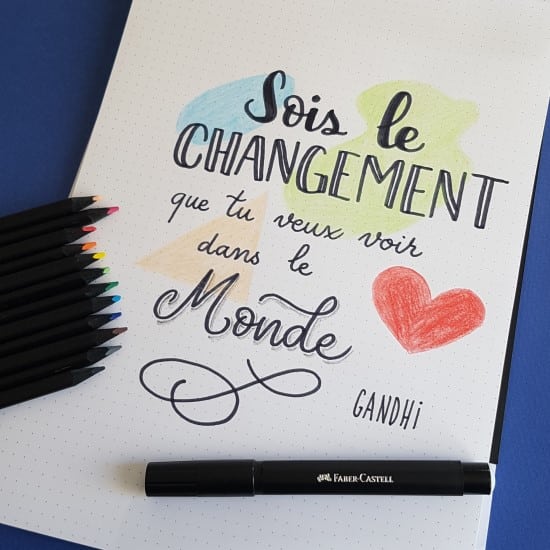 Sois le
CHANGEMENT
que tu veux voir
dans le
Monde
GANDHi
FABER-CASTELL